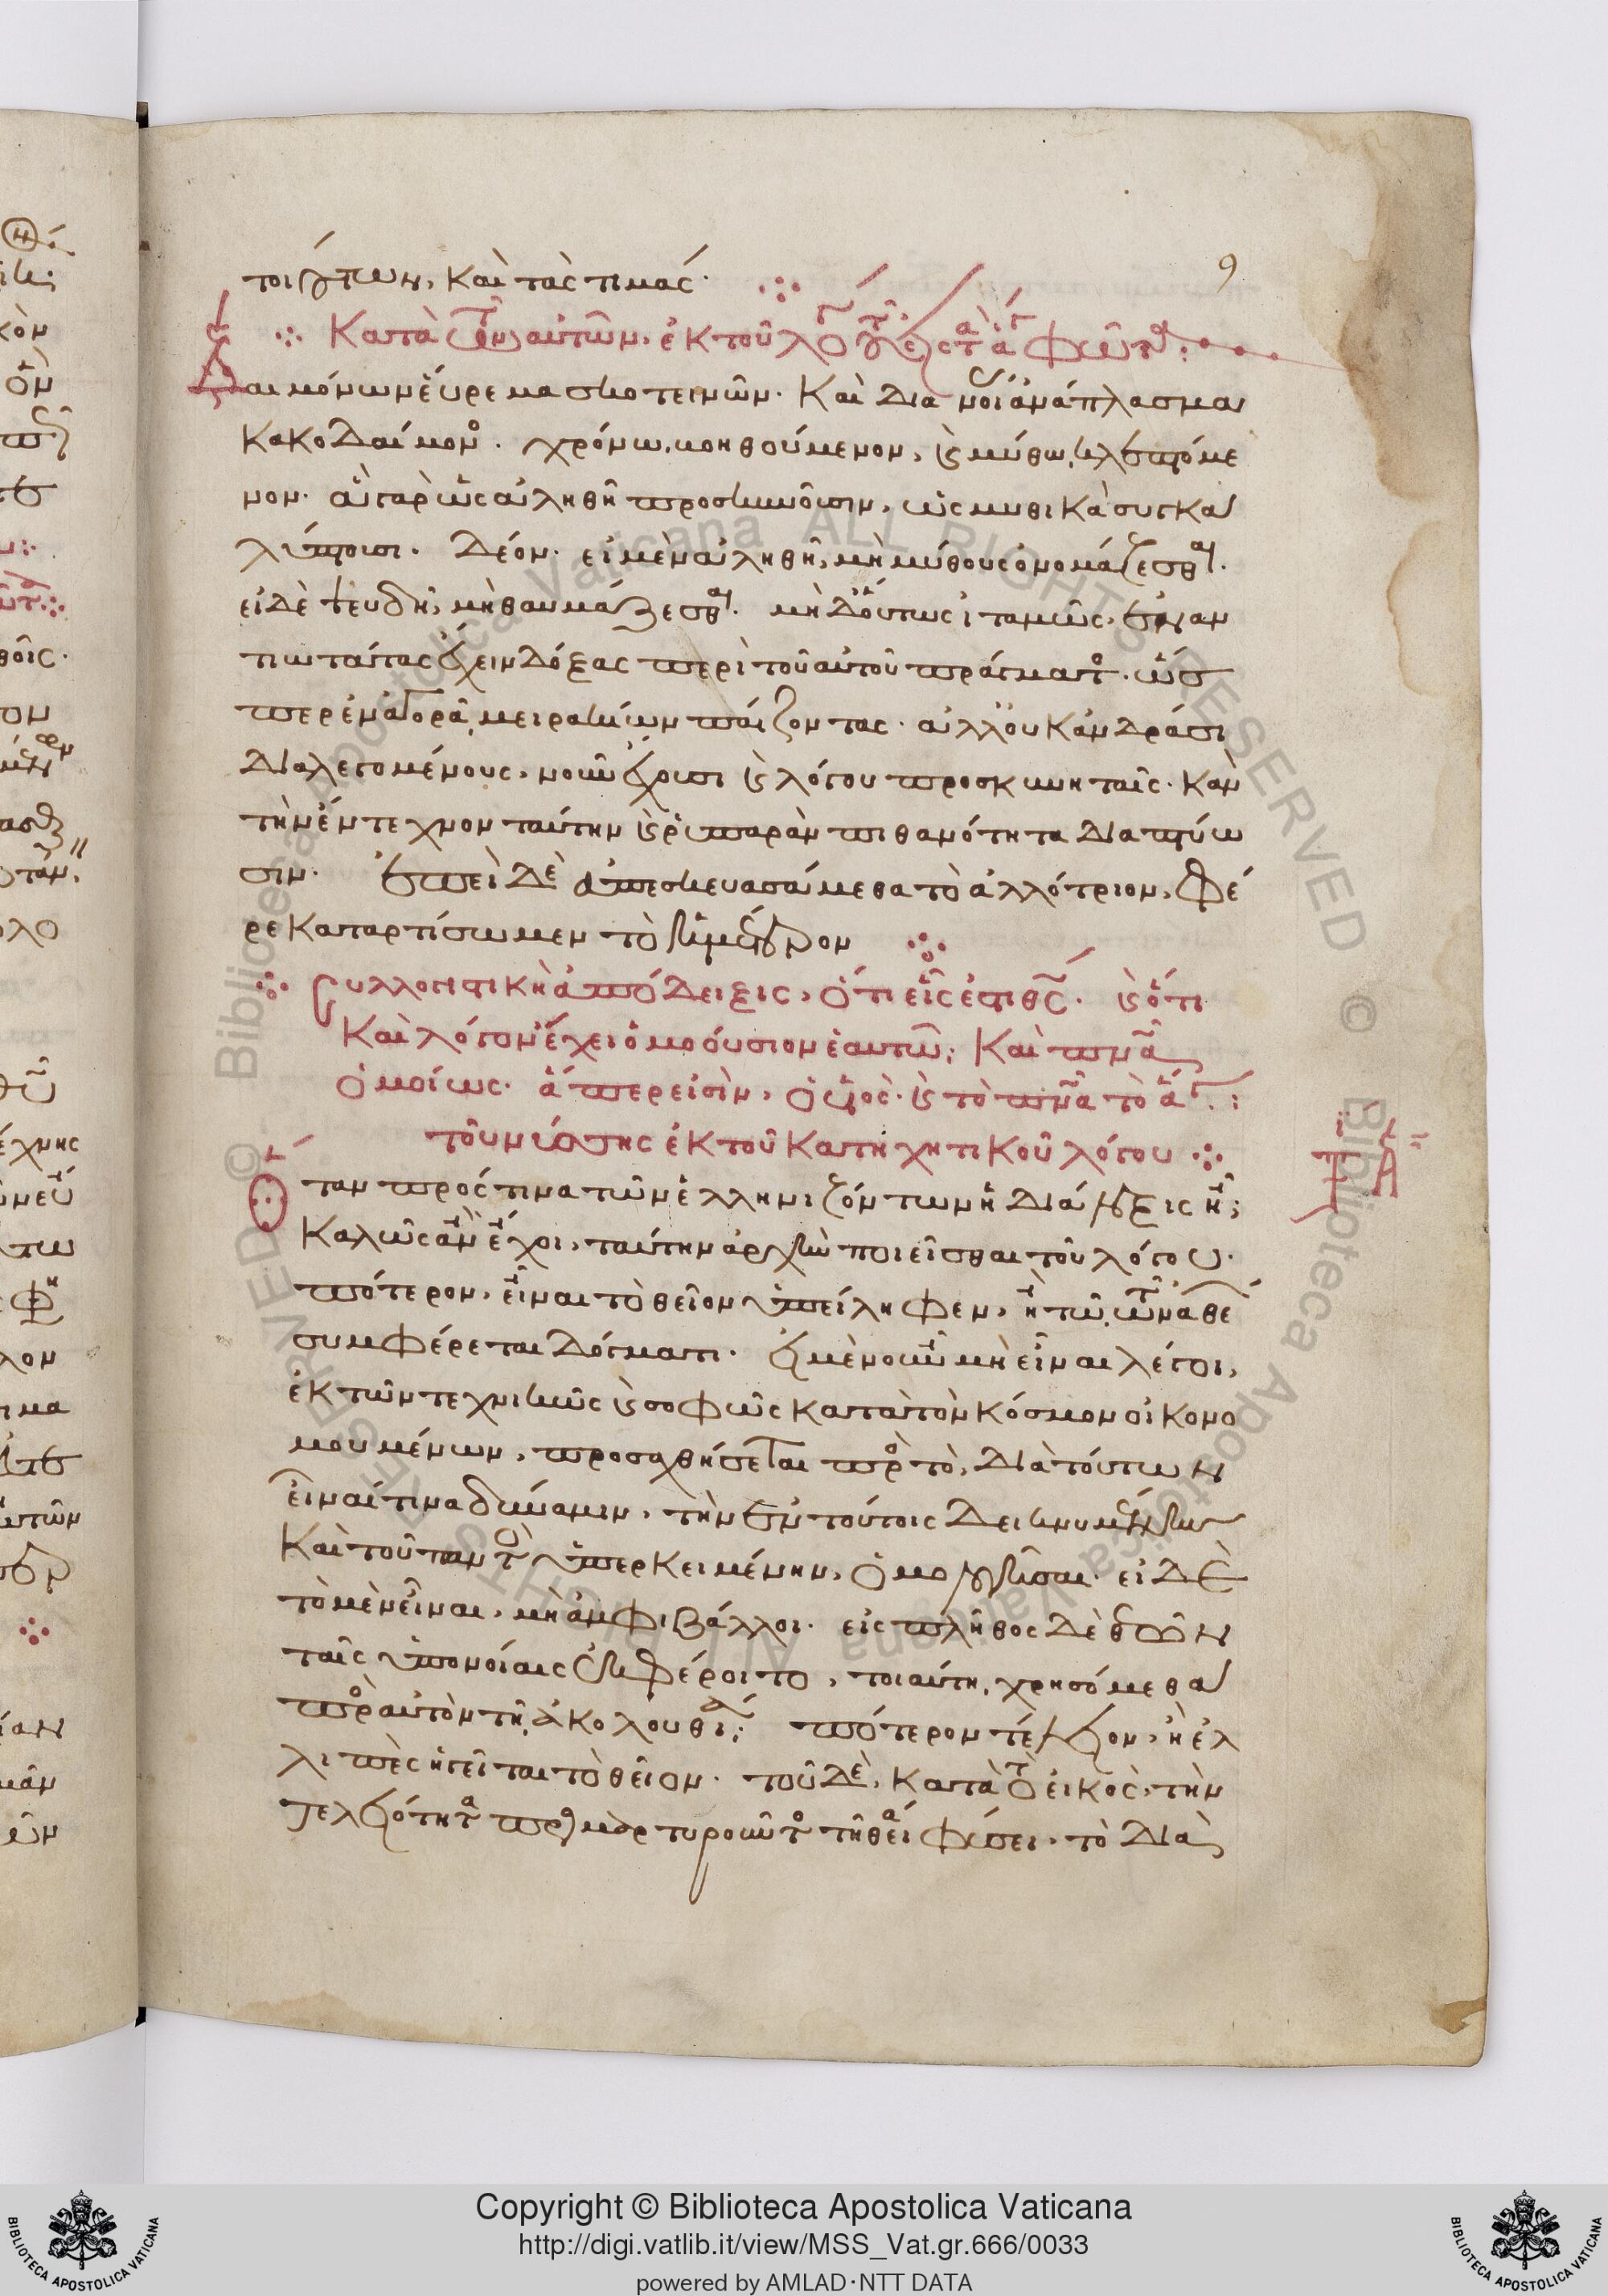 9
τοιούτων, καὶ τὰς τιμάς·
Κατὰ τῶν αὐτῶν, ἐκ τοῦ λόγου τοῦ εἰς τὰ ἅγια φῶτα:
Δαιμόνων εὕρεμα σκοτεινῶν· καὶ διανοίας ἀνάπλασμα
κακοδαίμονος. χρόνω, βοηθούμενον, καὶ μύθω, κλεπτόμε
νον· ἃ γὰρ ὡς ἀληθῆ προσκυνοῦσιν, ὡς μυθικὰ συγκα
λύπτουσι. Δέον· εἰ μὲν ἀληθῆ, μὴ μύθους ὀνομάζεσθαι.
εἰ δὲ ψευδῆ, μὴ θαυμάζεσθαι. μὴ δ' οὕτως ἰταμῶς, ἐναν
τιωτάτας ἔχειν δόξας περὶ τοῦ αὐτοῦ πράγματος· ὥσ
περ ἐν ἀγορᾶ μειρακίων παίζοντας· ἀλλ' οὐκ ἀνδράσι
διαλεγομένους, νοῦν ἔχουσι καὶ λόγου προσκυνηταῖς· κἂν
τὴν ἔντεχνον ταύτην καὶ ῥυπαρὰν πιθανότητα διαπτύω
σιν· ἐπεὶ δὲ ἀπεσκευασάμεθα τὸ ἀλλότριον, φέ
ρε καταρτίσωμεν τὸ ἡμέτερον
Συλλογιστικὴ ἀπόδειξις, ὅτι εἷς ἐστι θεός· καὶ ὅτι
καὶ λόγον ἔχει ὁμοούσιον ἑαυτῶ; καὶ πνεῦμα
ὁμοίως· ἅπερ εἰσὶν, ὁ υἱὸς· καὶ τὸ πνεῦμα τὸ ἅγιον:
τοῦ νύσσης ἐκ τοῦ κατηχητικοῦ λόγου
Ὅταν πρός τινα τῶν ἑλληνιζόντων ἡ διάλεξις ἦ;
καλῶς ἂν ἔχοι, ταύτην ἀρχὴν ποιεῖσθαι τοῦ λόγου·
πότερον, εἶναι τὸ θεῖον ὑπείληφεν, ἢ τῶ τῶν ἀθέων
συμφέρεται δόγματι· εἰ μὲν οὖν μὴ εἶναι λέγοι,
ἐκ τῶν τεχνικῶς καὶ σοφῶς κατὰ τὸν κόσμον οἰκονο
μουμένων, προσαχθήσεται πρὸς τὸ, διὰ τούτων
εἶναί τινα δύναμιν, τὴν ἐν τούτοις δεικνυμένην
καὶ τοῦ παντὸς ὑπερκειμένην, ὁμολογῆσαι· εἰ δὲ
τὸ μὲν εἶναι, μὴ ἀμφιβάλλοι· εἰς πλῆθος δὲ θεῶν
ταῖς ὑπονοίαις ἐκφέροιτο, τοιαύτη, χρησόμεθα
πρὸς αὐτὸν τῆ ἀκολουθία; πότερον τέλειον, ἢ ἐλ
λιπὲς ἡγεῖται τὸ θεῖον· τοῦ δὲ, κατὰ τὸ εἰκὸς, τὴν
τελειότητα προσμαρτυροῦντος τῆ θεία φύσει, τὸ διὰ